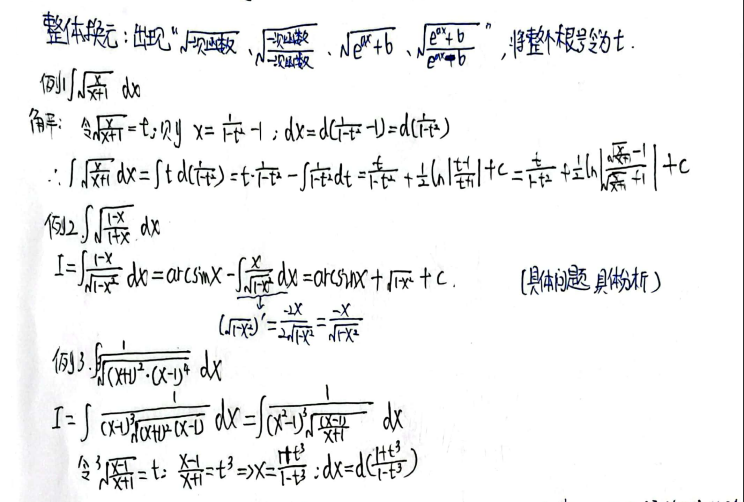 整体换元：出现“√一次函数、√(一次函数/一次函数)、√(e^(ax)+b)、√((e^(ax)+b)/(e^(ax)+b))”，将整个根号令为t.
例1 ∫√(x/(x+1)) dx
解：令√(x/(x+1))=t；则 x=1/(1-t²)-1；dx=d(1/(1-t²)-1)=d(1/(1-t²))
∴∫√(x/(x+1)) dx=∫t d(1/(1-t²))=t·1/(1-t²)-∫1/(1-t²)dt=t/(1-t²)+½ln|(t-1)/(t+1)|+c=t/(1-t²)+½ln|(√(x/(x+1))-1)/(√(x/(x+1))+1)|+c
例2.∫√((1-x)/(1+x)) dx
I=∫(1-x)/√(1-x²) dx=arcsinx-∫x/√(1-x²) dx=arcsinx+√(1-x²)+c. （具体问题具体分析）
(√(1-x²))'=-2x/(2√(1-x²))=-x/√(1-x²)
例3.∫1/³√((x+1)²·(x-1)⁴) dx
I=∫1/((x-1)³√((x+1)²(x-1))) dx=∫1/((x²-1)³√((x-1)/(x+1))) dx
令³√((x-1)/(x+1))=t；(x-1)/(x+1)=t³=>x=(1+t³)/(1-t³)；dx=d((1+t³)/(1-t³))